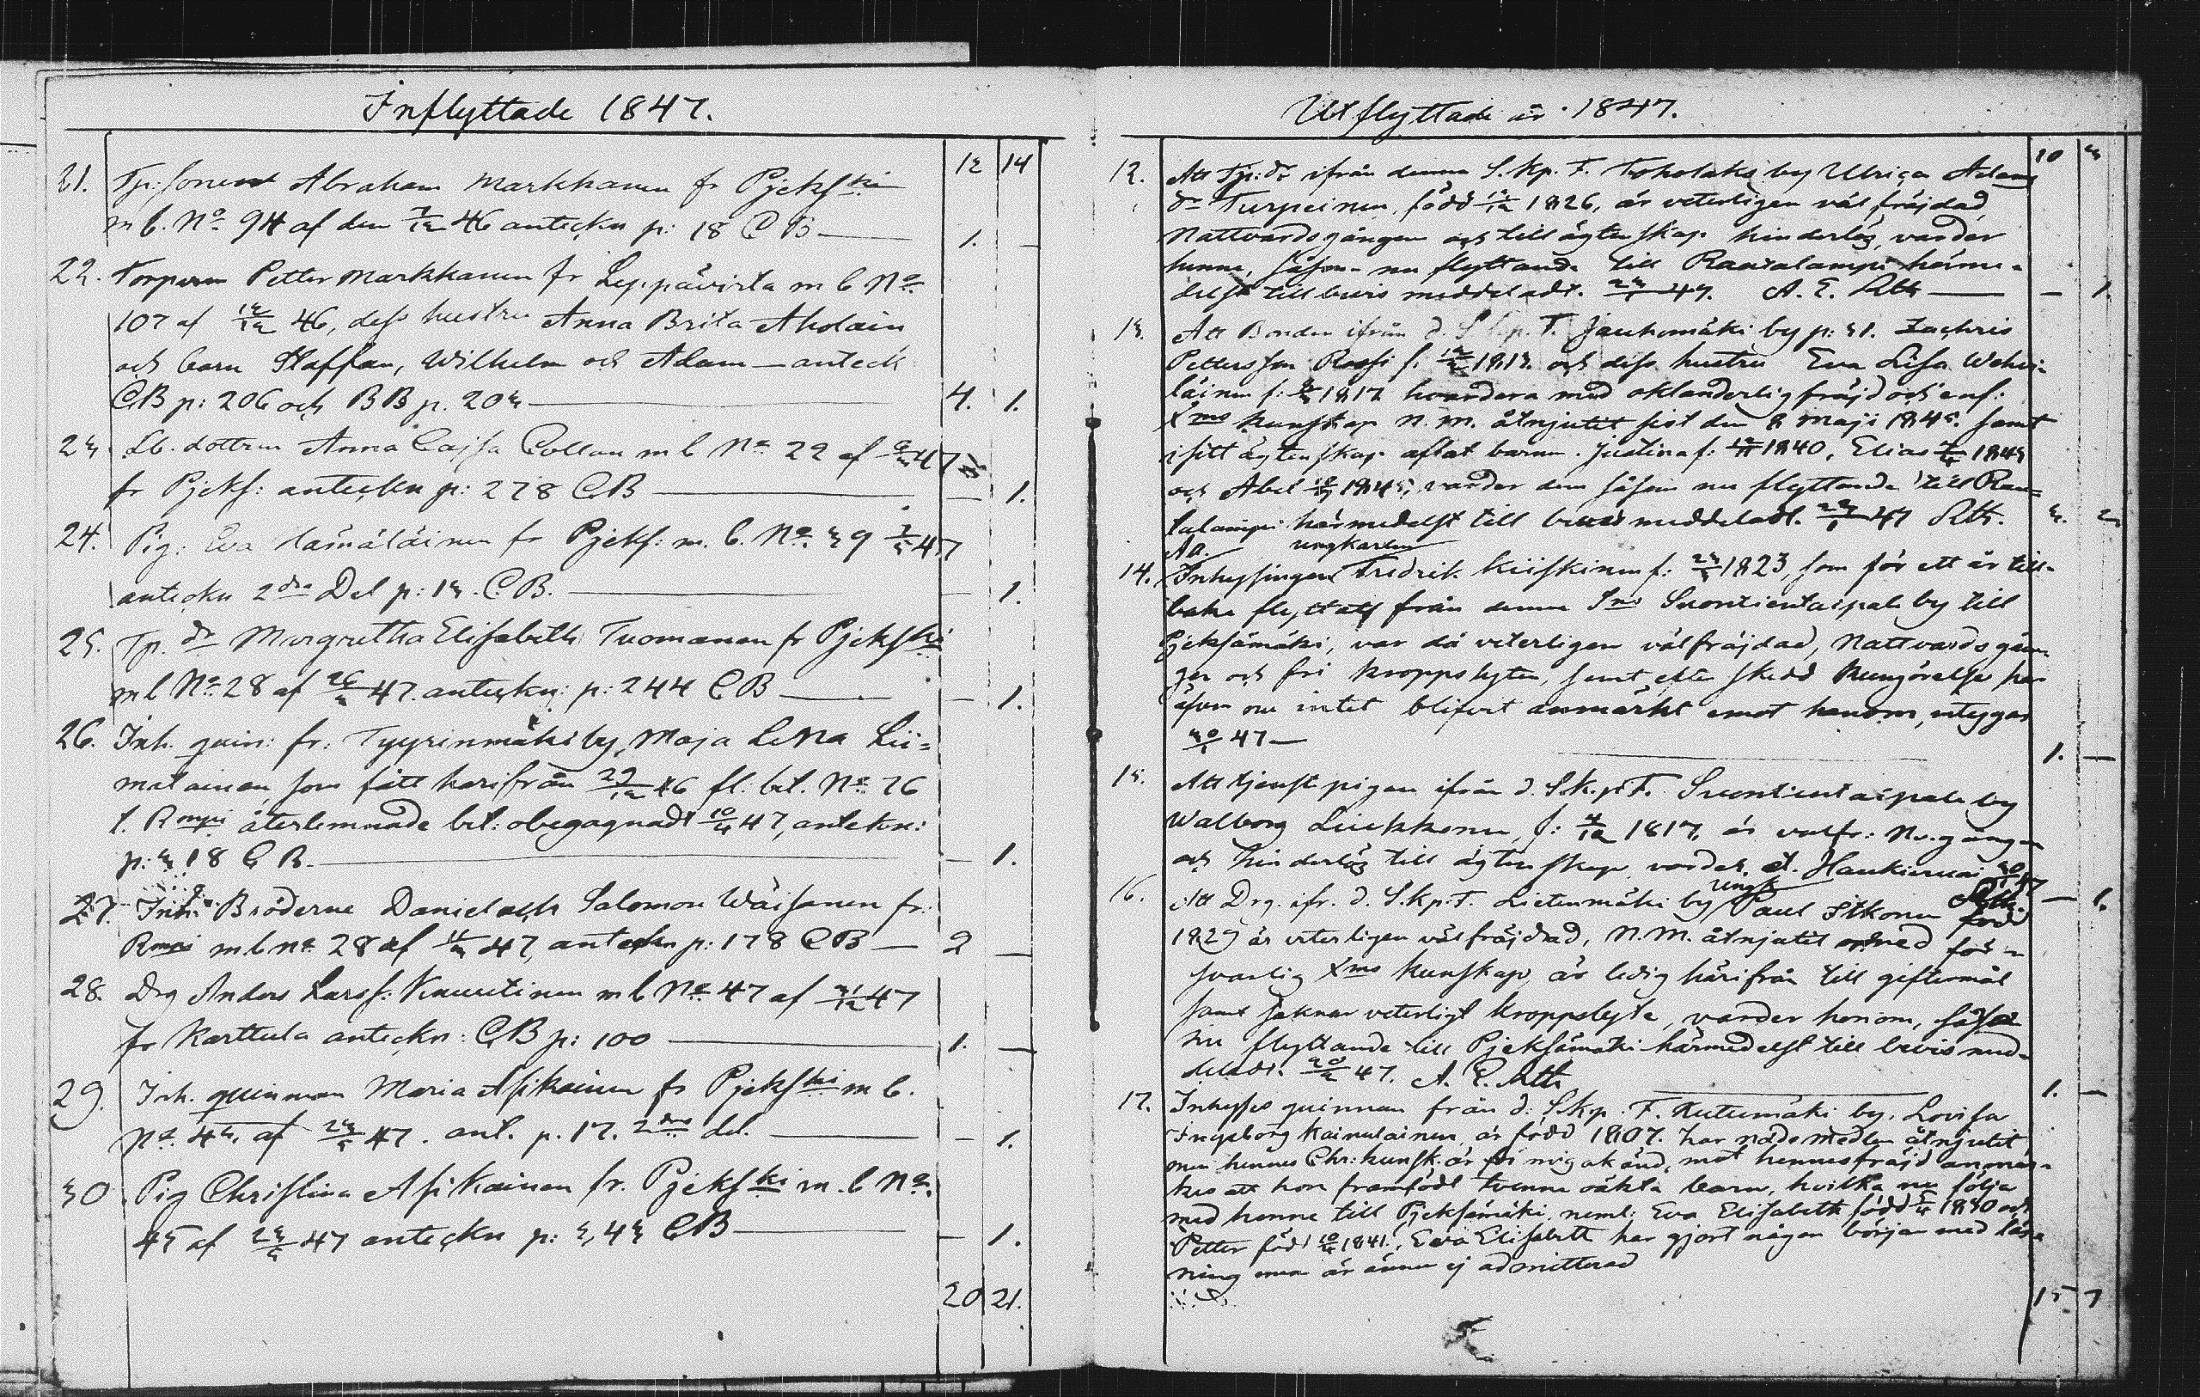 Inflyttade 1847.
12 14
21. Tp: sonen Abraham Markkanen fr Pjeks
m b. No 94 af den 46 anteckn p: 18 C B — 1. —
22. Torparen Petter Markkanen fr Leppävirta m b No
107 af 46, dess hustru Anna Brita Aholain
och barn Staffan, Wilhelm och Adam — anteck
CB p: 206 och BB p. 203 — 4. 1.
23. Lb. dottren Anna Cajsa Collan m b No 22 af 47
fr Pjeks: anteckn p: 278 CB — — 1.
24. Pig: Eva Lämäläinen fr Pjeks: m. b. No 39 47
anteckn 2dra Del p: 13. C.B. — — 1.
25. Tp. dr Margretha Elisabeth Tuomanen fr Pjekski
m b No 28 af 26 47. anteckn: p: 244 CB — — 1.
26. Inh. quin: fr: Tyyrinmäki by, Maja Lena Lii=
matainen, som fått härifrån 29/12 46 fl. bet. No 76
t. Rmpi återlemnade bet: obegagnadt 10/4 47, antekn:
p: 318 C B. — — 1.
27. Inh: Bröderne Daniel och Salomon Wäisänen fr.
Rmpi m b no 28 af 47, anteckn p: 178 CB — 2 —
28. Drg Anders Larss: Kauutinen m b No 47 af 47
fr Karttula anteckn: CB p: 100 — 1. —
29. Inh. quinnan Maria Asikainen fr Pjekski m b.
No 43, af 23 47. ant. p. 17. 2dra del. — — 1.
30 Pig Christina Asikainen fr. Pjekski m. b No.
45 af 23 47 anteckn p: 343 CB — — 1.
20 21.
Utflyttade år 1847.
10 3
12. Att Tp: dr ifrån denna S. kp. F. Toholaks by Ulrica Adams
dr Turpeinen, född 1826, är veterligen väl fräjdad,
Nattvardsgången och till ägtenskap hinderlös, varder
henne, såsom nu flyttande till Rautalampi härme-
delst till bevis meddeladt. 47. A. E. — — 1.
13. Att Bonden ifrån d. S. k. p. F. Jauhomäki by p: 31. Zachris
Pettersson Rossi f. 1813. och dess hustru Eva Lisa Wehvi-
läinen f: 1817 hvardera med oklanderlig fräjd och enf:
Xms kunskap N. M. åtnjutit sist den 8 Maji 1845. samt
i sitt ägtenskap aflat barnen. Justina f: 1840, Elias 1843
och Abel 1845, varder dem såsom nu flyttande till Rau=
talampi härmedelst till bevis meddeladt. 47 3. 2.
ungkarlen
14. Inhysingen Fredrik Kiiskinen f: 1823, som för ett år till-
baka flyttat från denna Suontientaipale by till
Pjeksämäki, var då veterligen välfräjdad, Nattvardsgän-
gen och fri kroppslyten, samt efter skedd kungörelse har
äfven nu intet blifvit anmärkt emot honom, utgår
30/1 47 — 1. —
15. Att tjenstepigan ifrån d. S.k.p.F. Suontientaipale by
Walborg Liukkonen, f: 1817, är valfr: Nv. gången
och hinderlös till ägtenskap, varder. Haukivuori 47 — 1.
16. Att Drg. ifr. d. S.k.p.F. Lietenmäki by ungk Paul Itkonen född
1827 är veterligen välfräjdad, N. M. åtnjutit med för-
svarlig Xms kunskap, är ledig härifrån till giftermål
samt saknar veterligt kroppslyte, varder honom, såsom
nu flyttande till Pjeksämäki härmedelst till bevis med-
deladt. 20 47. A. E. 1. —
17. Inhyses quinnan från d. S.kp. F. Kutumäki by. Lovisa
Ingeborg Kainulainen, är född 1807. har nådemedlen åtnjutit
men hennes Chr: kunsk: är för mig okänd, mot hennes fräjd anmär-
kes att hon framfödt tvenne oäkta barn, hvilka nu följa
med henne till Pjeksämäki neml: Eva Elisabeth född 1830 och
Petter född 1841. Eva Elisabeth har gjort någon början med läs-
ning men är ännu ej admitterad
15 7